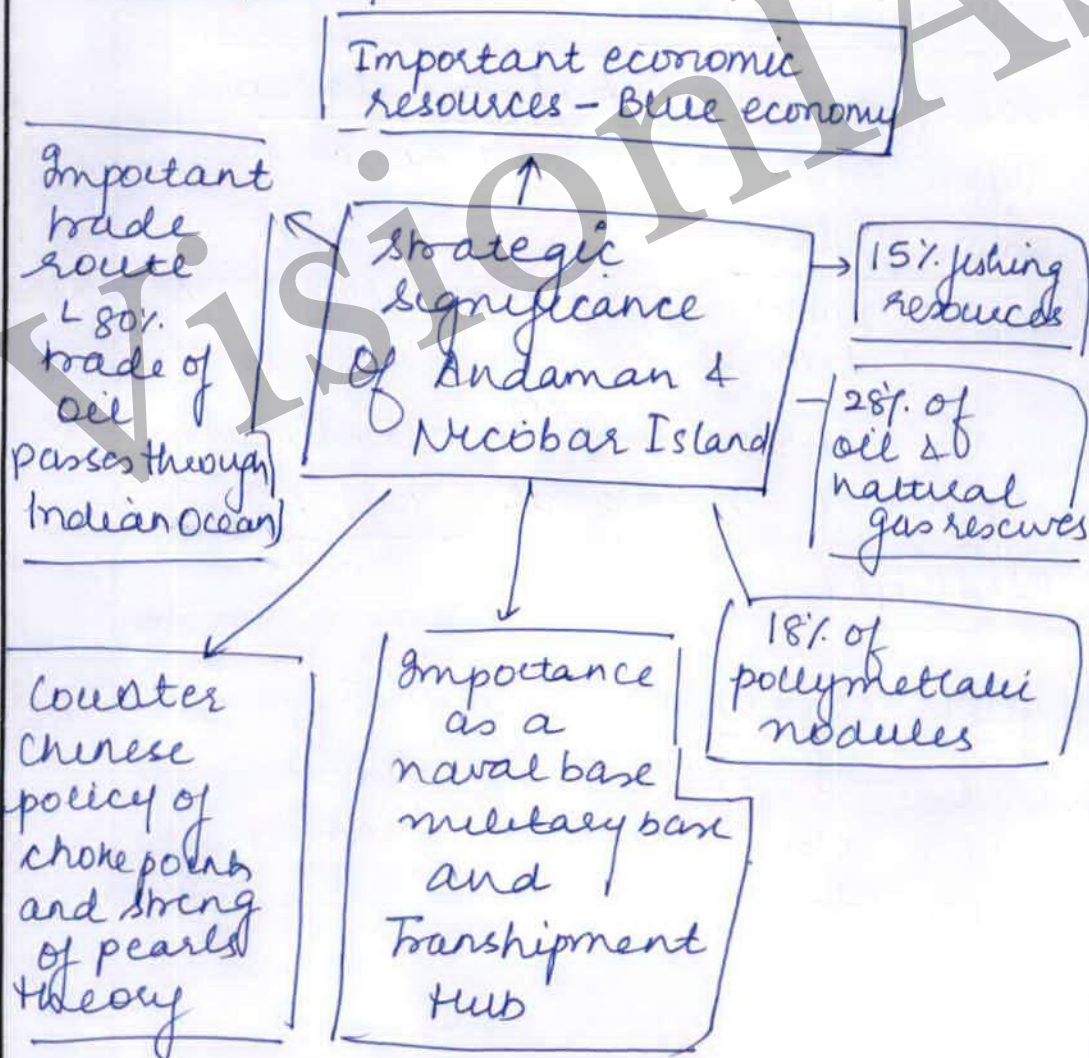 Important economic
resources - Blue economy
Important
trade
route
↳ 80%
trade of
oil
passes through
Indian Ocean
Strategic
significance
Of Andaman &
Nicobar Island
15% fishing
resources
28% of
oil &
natural
gas reserves
18% of
pollymettalic
nodules
Counter
Chinese
policy of
choke points
and string
of pearls
theory
Importance
as a
naval base
military base
and
Transhipment
Hub
VisionIA